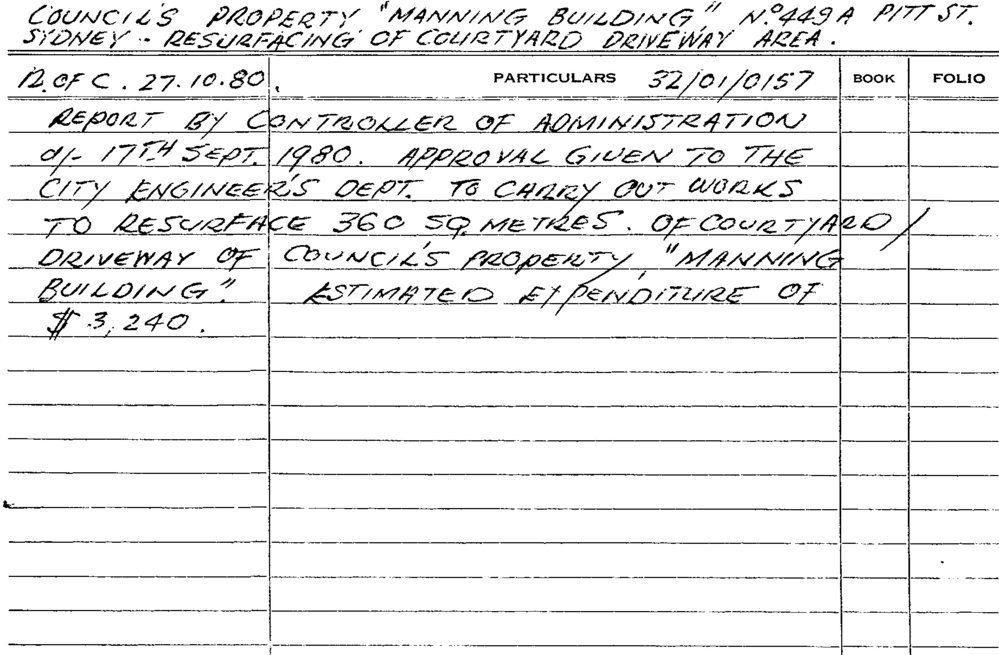 COUNCIL'S PROPERTY "MANNING BUILDING", Nº449A PITT ST.
SYDNEY - RESURFACING OF COURTYARD DRIVEWAY AREA.
R. OF C. 27.10.80. PARTICULARS 32/01/0157 BOOK FOLIO
REPORT BY CONTROLLER OF ADMINISTRATION
d/- 17TH SEPT. 1980. APPROVAL GIVEN TO THE
CITY ENGINEER'S DEPT. TO CARRY OUT WORKS
TO RESURFACE 360 SQ. METRES. OF COURTYARD/
DRIVEWAY OF COUNCIL'S PROPERTY, "MANNING
BUILDING". ESTIMATED EXPENDITURE OF
$3,240.